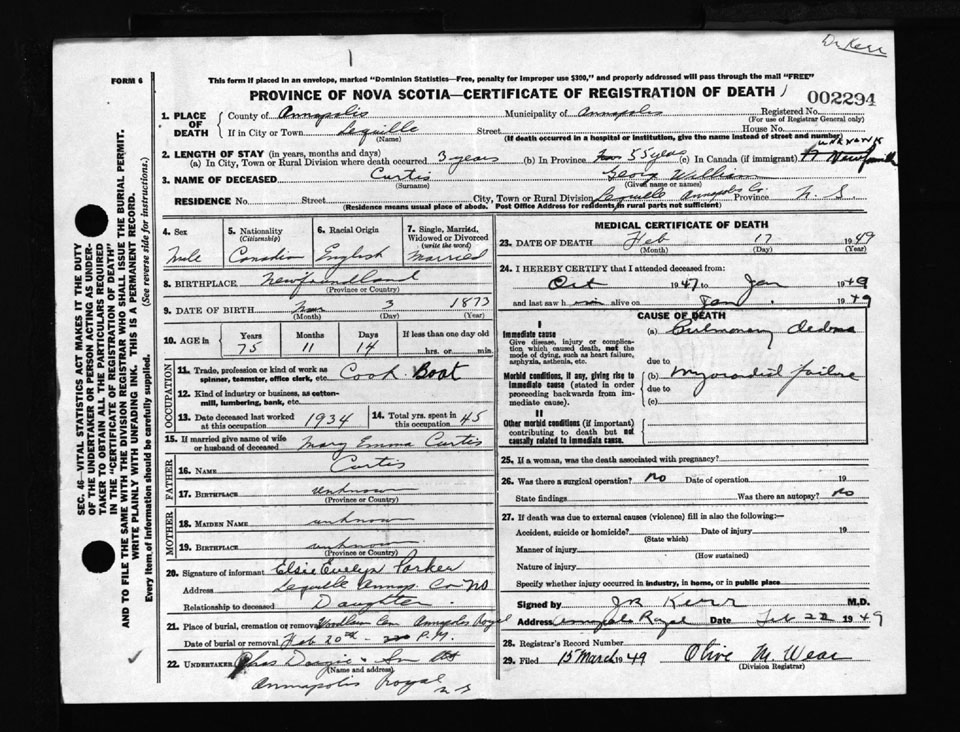 Dr Kerr
1
FORM 6
This form if placed in an envelope, marked "Dominion Statistics—Free, penalty for improper use $300," and properly addressed will pass through the mail "FREE"
PROVINCE OF NOVA SCOTIA—CERTIFICATE OF REGISTRATION OF DEATH
002294
1. PLACE OF DEATH County of Annapolis Municipality of Annapolis Registered No.
(For use of Registrar General only)
If in City or Town Lequille Street House No.
(Name) (If death occurred in a hospital or institution, give the name instead of street and number)
unknown
2. LENGTH OF STAY (in years, months and days)
(a) In City, Town or Rural Division where death occurred 3 years (b) In Province 55 years (c) In Canada (if immigrant)
3. NAME OF DECEASED Curtis George William
(Surname) (Given name or names)
RESIDENCE No. Street City, Town or Rural Division Lequille Annapolis Co. Province N. S
(Residence means usual place of abode. Post Office Address for residents in rural parts not sufficient)
4. Sex Male
5. Nationality (Citizenship) Canadian
6. Racial Origin English
7. Single, Married, Widowed or Divorced (write the word) Married
8. BIRTHPLACE Newfoundland
(Province or Country)
9. DATE OF BIRTH 3 1873
(Month) (Day) (Year)
10. AGE in Years Months Days If less than one day old
75 11 14 hrs. or min.
OCCUPATION
11. Trade, profession or kind of work as spinner, teamster, office clerk, etc. Cook Boat
12. Kind of industry or business, as cotton-mill, lumbering, bank, etc.
13. Date deceased last worked at this occupation 1934
14. Total yrs. spent in this occupation 45
15. If married give name of wife or husband of deceased Mary Emma Curtis
FATHER
16. NAME Curtis
17. BIRTHPLACE unknown
(Province or Country)
MOTHER
18. MAIDEN NAME unknown
19. BIRTHPLACE unknown
(Province or Country)
20. Signature of informant Elsie Evelyn Parker
Address Lequille Annap. Co NS
Relationship to deceased Daughter.
21. Place of burial, cremation or removal Woodlawn Cem Annapolis Royal
Date of burial or removal Feb 20th - P.M.
22. UNDERTAKER & Son
(Name and address)
Annapolis Royal
N S
MEDICAL CERTIFICATE OF DEATH
23. DATE OF DEATH Feb 17 1949
(Month) (Day) (Year)
24. I HEREBY CERTIFY that I attended deceased from:
Oct 1947 to Jan 1949
and last saw h alive on Jan. 1949
CAUSE OF DEATH
I
Immediate cause
Give disease, injury or complication, which caused death, not the mode of dying, such as heart failure, asphyxia, asthenia, etc.
(a) Pulmonary Oedema
due to
Morbid conditions, if any, giving rise to immediate cause (stated in order proceeding backwards from immediate cause).
(b) Myocardial failure
due to
(c)
II
Other morbid conditions (if important) contributing to death but not causally related to immediate cause.
25. If a woman, was the death associated with pregnancy?
26. Was there a surgical operation? No Date of operation 19
State findings Was there an autopsy? No
27. If death was due to external causes (violence) fill in also the following:—
Accident, suicide or homicide? Date of injury 19
(State which)
Manner of injury
(How sustained)
Nature of injury
Specify whether injury occurred in industry, in home, or in public place
Signed by Kerr M.D.
Address Annapolis Royal Date Feb 22 1949
28. Registrar's Record Number
29. Filed 15 March 1949 Olive M. Wear
(Division Registrar)
SEC. 46—VITAL STATISTICS ACT MAKES IT THE DUTY
OF THE UNDERTAKER OR PERSON ACTING AS UNDER-
TAKER TO OBTAIN ALL THE PARTICULARS REQUIRED
IN THE "CERTIFICATE OF REGISTRATION OF DEATH"
AND TO FILE THE SAME WITH THE DIVISION REGISTRAR WHO SHALL ISSUE THE BURIAL PERMIT.
WRITE PLAINLY WITH UNFADING INK. THIS IS A PERMANENT RECORD.
Every item of information should be carefully supplied. (See reverse side for instructions.)